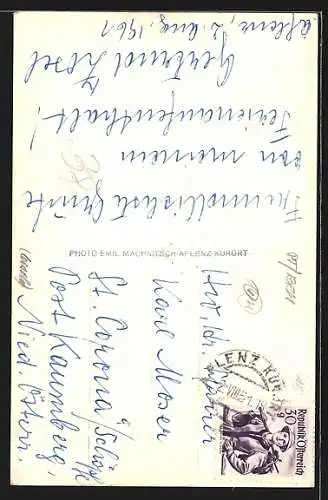 Aflenz, 2. Aug. 1961
Freundlichste Grüße
von meinem
Ferienaufenthalt!
Gertrud
PHOTO EMIL MACHNITSCH AFLENZ-KURORT
Karl Moser
St. Corona a/Schöpfl
Post Kaumberg,
Nied. Österr.
Republik Österreich
30 g